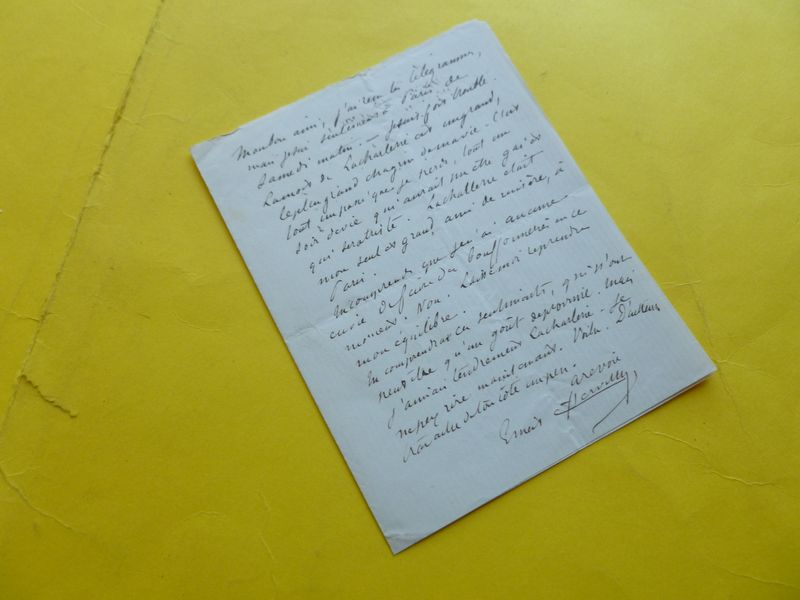 Mon bon ami, j'ai reçu ton télégramme,
mais je suis seulement à Paris de
Samedi matin. — Je suis fort troublé.
La mort de Lachalerie est un grand,
le plus grand chagrin de ma vie. C'est
tout un passé que je perds, tout un
soir de vie qui aurait pu être gai et
qui sera triste. Lachallerie était
mon seul et grand ami de misère, à
Paris.
Tu comprends que je n'ai aucune
envie de faire du bouffonnerie en ce
moment. Non. Laisse moi reprendre
mon équilibre.
Tu comprendras ces sentiments, qui n'ont
peut être qu'un goût de province. Mais
j'aimais tendrement Lachalerie. Je
ne peux rire maintenant. Voilà. D'ailleurs
de ton côté un peu.
à revoir
Ernest d'Hervilly